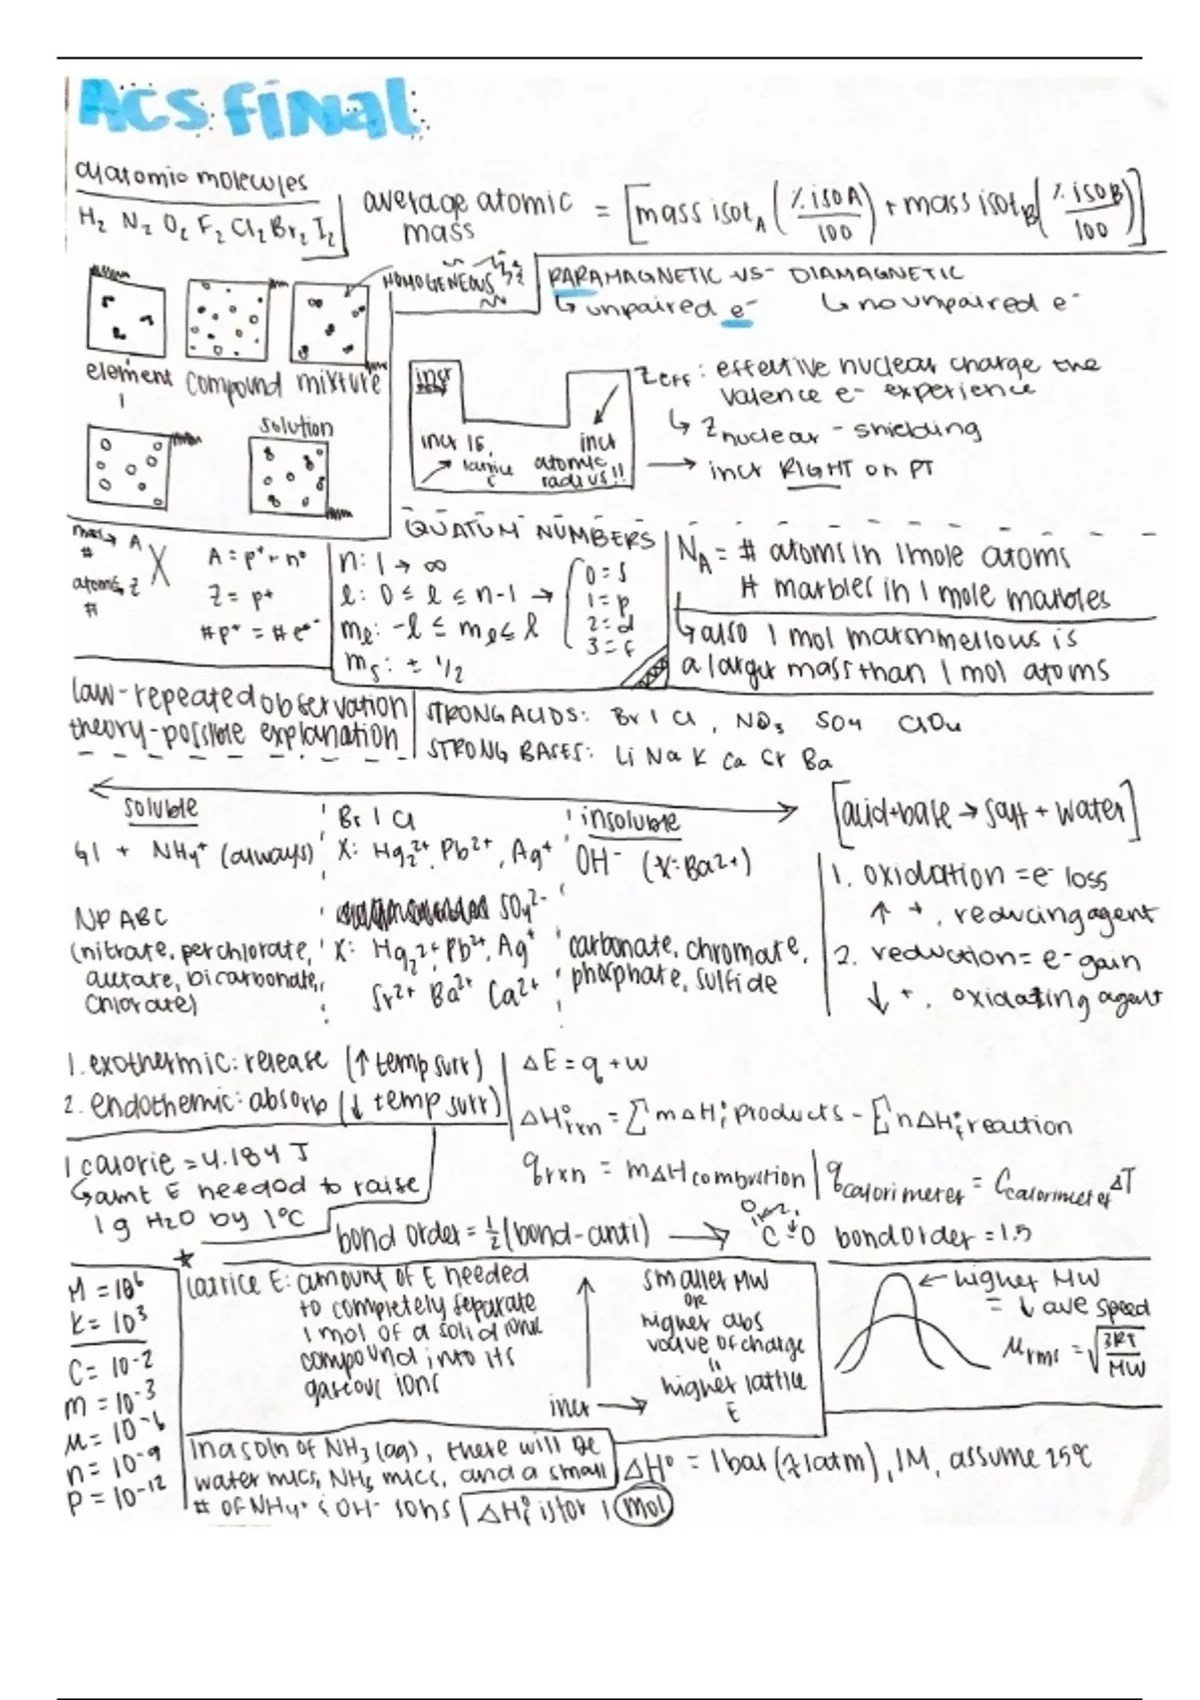 ACS final
diatomic molecules
H2 N2 O2 F2 Cl2 Br2 I2
average atomic mass = [mass isotA (% iso A / 100) + mass isotB (% iso B / 100)]
HOMOGENEOUS
element compound mixture
solution
PARAMAGNETIC -VS- DIAMAGNETIC
↳ unpaired e- ↳ no unpaired e-
incr
incr IE,
incr atomic radius!!
Zeff: effective nuclear charge the
valence e- experience
↳ Znuclear - shielding
→ incr RIGHT on PT
mass # → A
atomic # → Z
X
A = p+ + n°
Z = p+
#p+ = #e-
QUATUM NUMBERS
n: 1 → ∞
l: 0 ≤ l ≤ n-1 → 0 = s
1 = p
2 = d
3 = f
ml: -l ≤ ml ≤ l
ms: ± 1/2
NA = # atoms in 1 mole atoms
# marbles in 1 mole marbles
↳ also 1 mol marshmellows is
a larger mass than 1 mol atoms
law - repeated observation
theory - possible explanation
STRONG ACIDS: Br I Cl, NO3 SO4 ClO4
STRONG BASES: Li Na K Ca Sr Ba
soluble
G1 + NH4+ (always)
NP ABC
(nitrate, perchlorate,
acetate, bicarbonate,
chlorate)
Br I Cl
X: Hg2 2+, Pb2+, Ag+
SO4 2-
X: Hg2 2+ Pb2+, Ag+
Sr2+ Ba2+ Ca2+
insoluble
OH- (X: Ba2+)
carbonate, chromate,
phosphate, sulfide
[acid + base → salt + water]
1. oxidation = e- loss
↑ +, reducing agent
2. reduction = e- gain
↓ +, oxidating agent
1. exothermic: release (↑ temp surr)
2. endothemic: absorb (↓ temp surr)
ΔE = q + w
ΔH°rxn = Σ m ΔH°f products - Σ n ΔH°f reaction
1 calorie = 4.184 J
↳ amt E needed to raise
1 g H2O by 1°C
qrxn = mΔH combustion | qcalorimeter = Ccalorimeter ΔT
bond order = 1/2 (bond - anti) → C O bond order = 1.5
M = 10^6
K = 10^3
C = 10^-2
m = 10^-3
μ = 10^-6
n = 10^-9
p = 10^-12
lattice E: amount of E needed
to completely separate
1 mol of a solid ionic
compound into its
gaseous ions
incr →
smaller MW
or
higher abs
value of charge
=
higher lattice
E
← higher MW
= ↓ ave speed
μrms = √(3RT / MW)
In a soln of NH3 (aq), there will be
water mlcs, NH3 mlcs, and a small
# of NH4+ & OH- ions
ΔH° = 1 bar (≈ 1 atm), 1M, assume 25°C
ΔH°f is for 1 mol